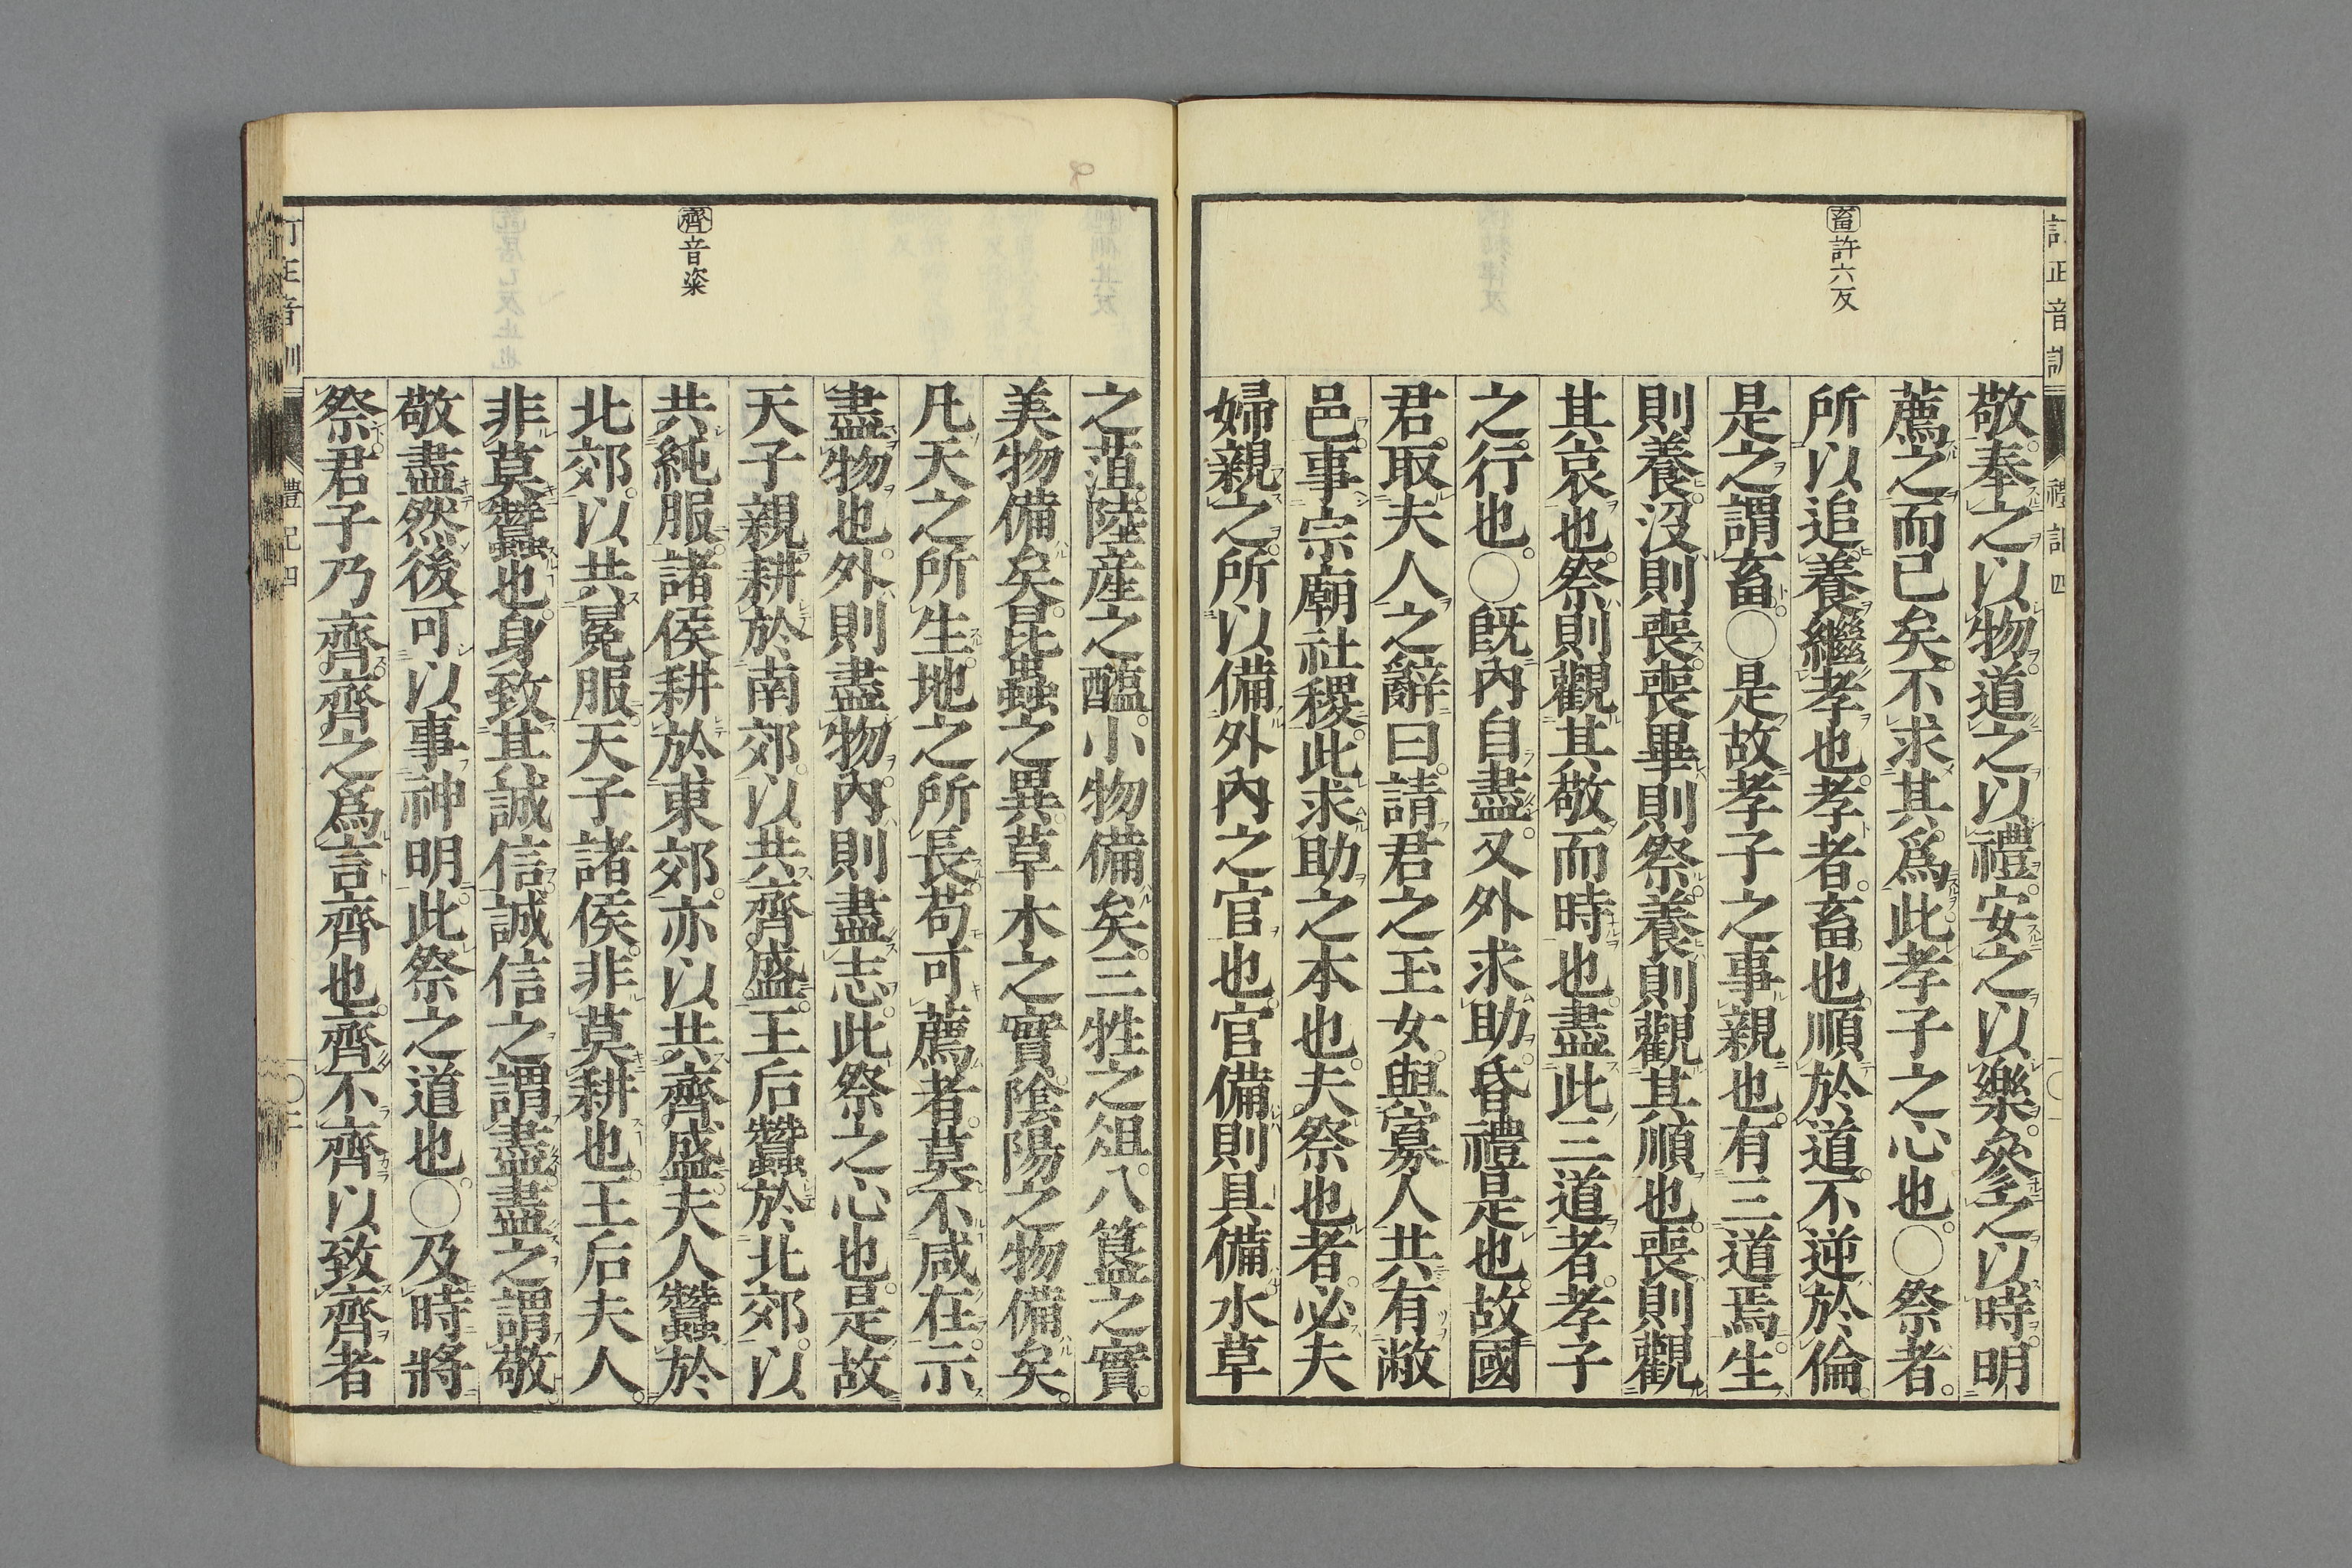 訂正音訓
禮記四
一〇一
畜許六反
敬奉之以物道之以禮安之以樂參之以時明
薦之而已矣不求其爲此孝子之心也○祭者
所以追養繼孝也孝者畜也順於道不逆於倫
是之謂畜○是故孝子之事親也有三道焉生
則養沒則喪喪畢則祭養則觀其順也喪則觀
其哀也祭則觀其敬而時也盡此三道者孝子
之行也○既內自盡又外求助昏禮是也故國
君取夫人之辭曰請君之玉女與寡人共有敝
邑事宗廟社稷此求助之本也夫祭也者必夫
婦親之所以備外內之官也官備則具備水草
齊音粢
之葅陸產之醢小物備矣三牲之俎八簋之實
美物備矣昆蟲之異草木之實陰陽之物備矣
凡天之所生地之所長苟可薦者莫不咸在示
盡物也外則盡物內則盡志此祭之心也是故
天子親耕於南郊以共齊盛王后蠶於北郊以
共純服諸侯耕於東郊亦以共齊盛夫人蠶於
北郊以共冕服天子諸侯非莫耕也王后夫人
非莫蠶也身致其誠信誠信之謂盡盡之謂敬
敬盡然後可以事神明此祭之道也○及時將
祭君子乃齊齊之爲言齊也齊不齊以致齊者
訂正音訓
禮記四